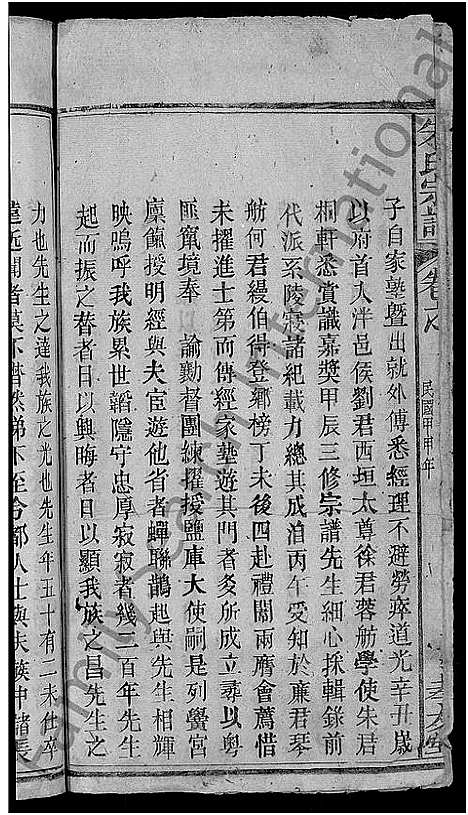 朱氏宗譜
卷首
民國甲申年
子自家塾暨出就外傅悉經理不避勞瘁道光辛丑歲
以府首入泮邑侯劉君西垣太尊徐君蓉舫學使朱君
桐軒悉賞識嘉獎甲辰三修宗譜先生細心採輯錄前
代派系陵寢諸紀載力總其成洎丙午受知於廉君琴
舫何君縵伯得登鄉榜丁未後四赴禮闈兩膺會薦惜
未擢進士第而傳經家塾遊其門者多所成立尋以粵
匪竄境奉 諭勷督團練擢授鹽庫大使嗣是列黌宮
廩餼授明經與夫宦遊他省者蟬聯鵲起與先生相輝
映嗚呼我族累世韜隱守忠厚寂寂者幾二百年先生
起而振之替者日以興晦者日以顯我族之昌先生之
力也先生之達我族之光也先生年五十有二未仕卒
遠近聞者莫不潸然涕下至今都人士與夫族中諸長
Family Search International